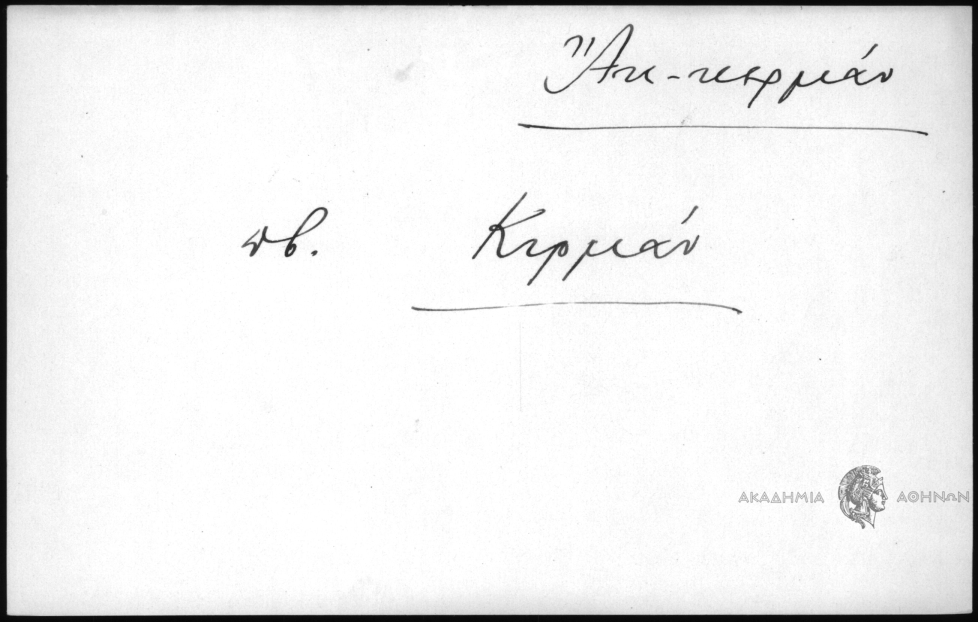 Ἂκ-κερμάν
πβ. Κερμάν
ΑΚΑΔΗΜΙΑ ΑΘΗΝΩΝ